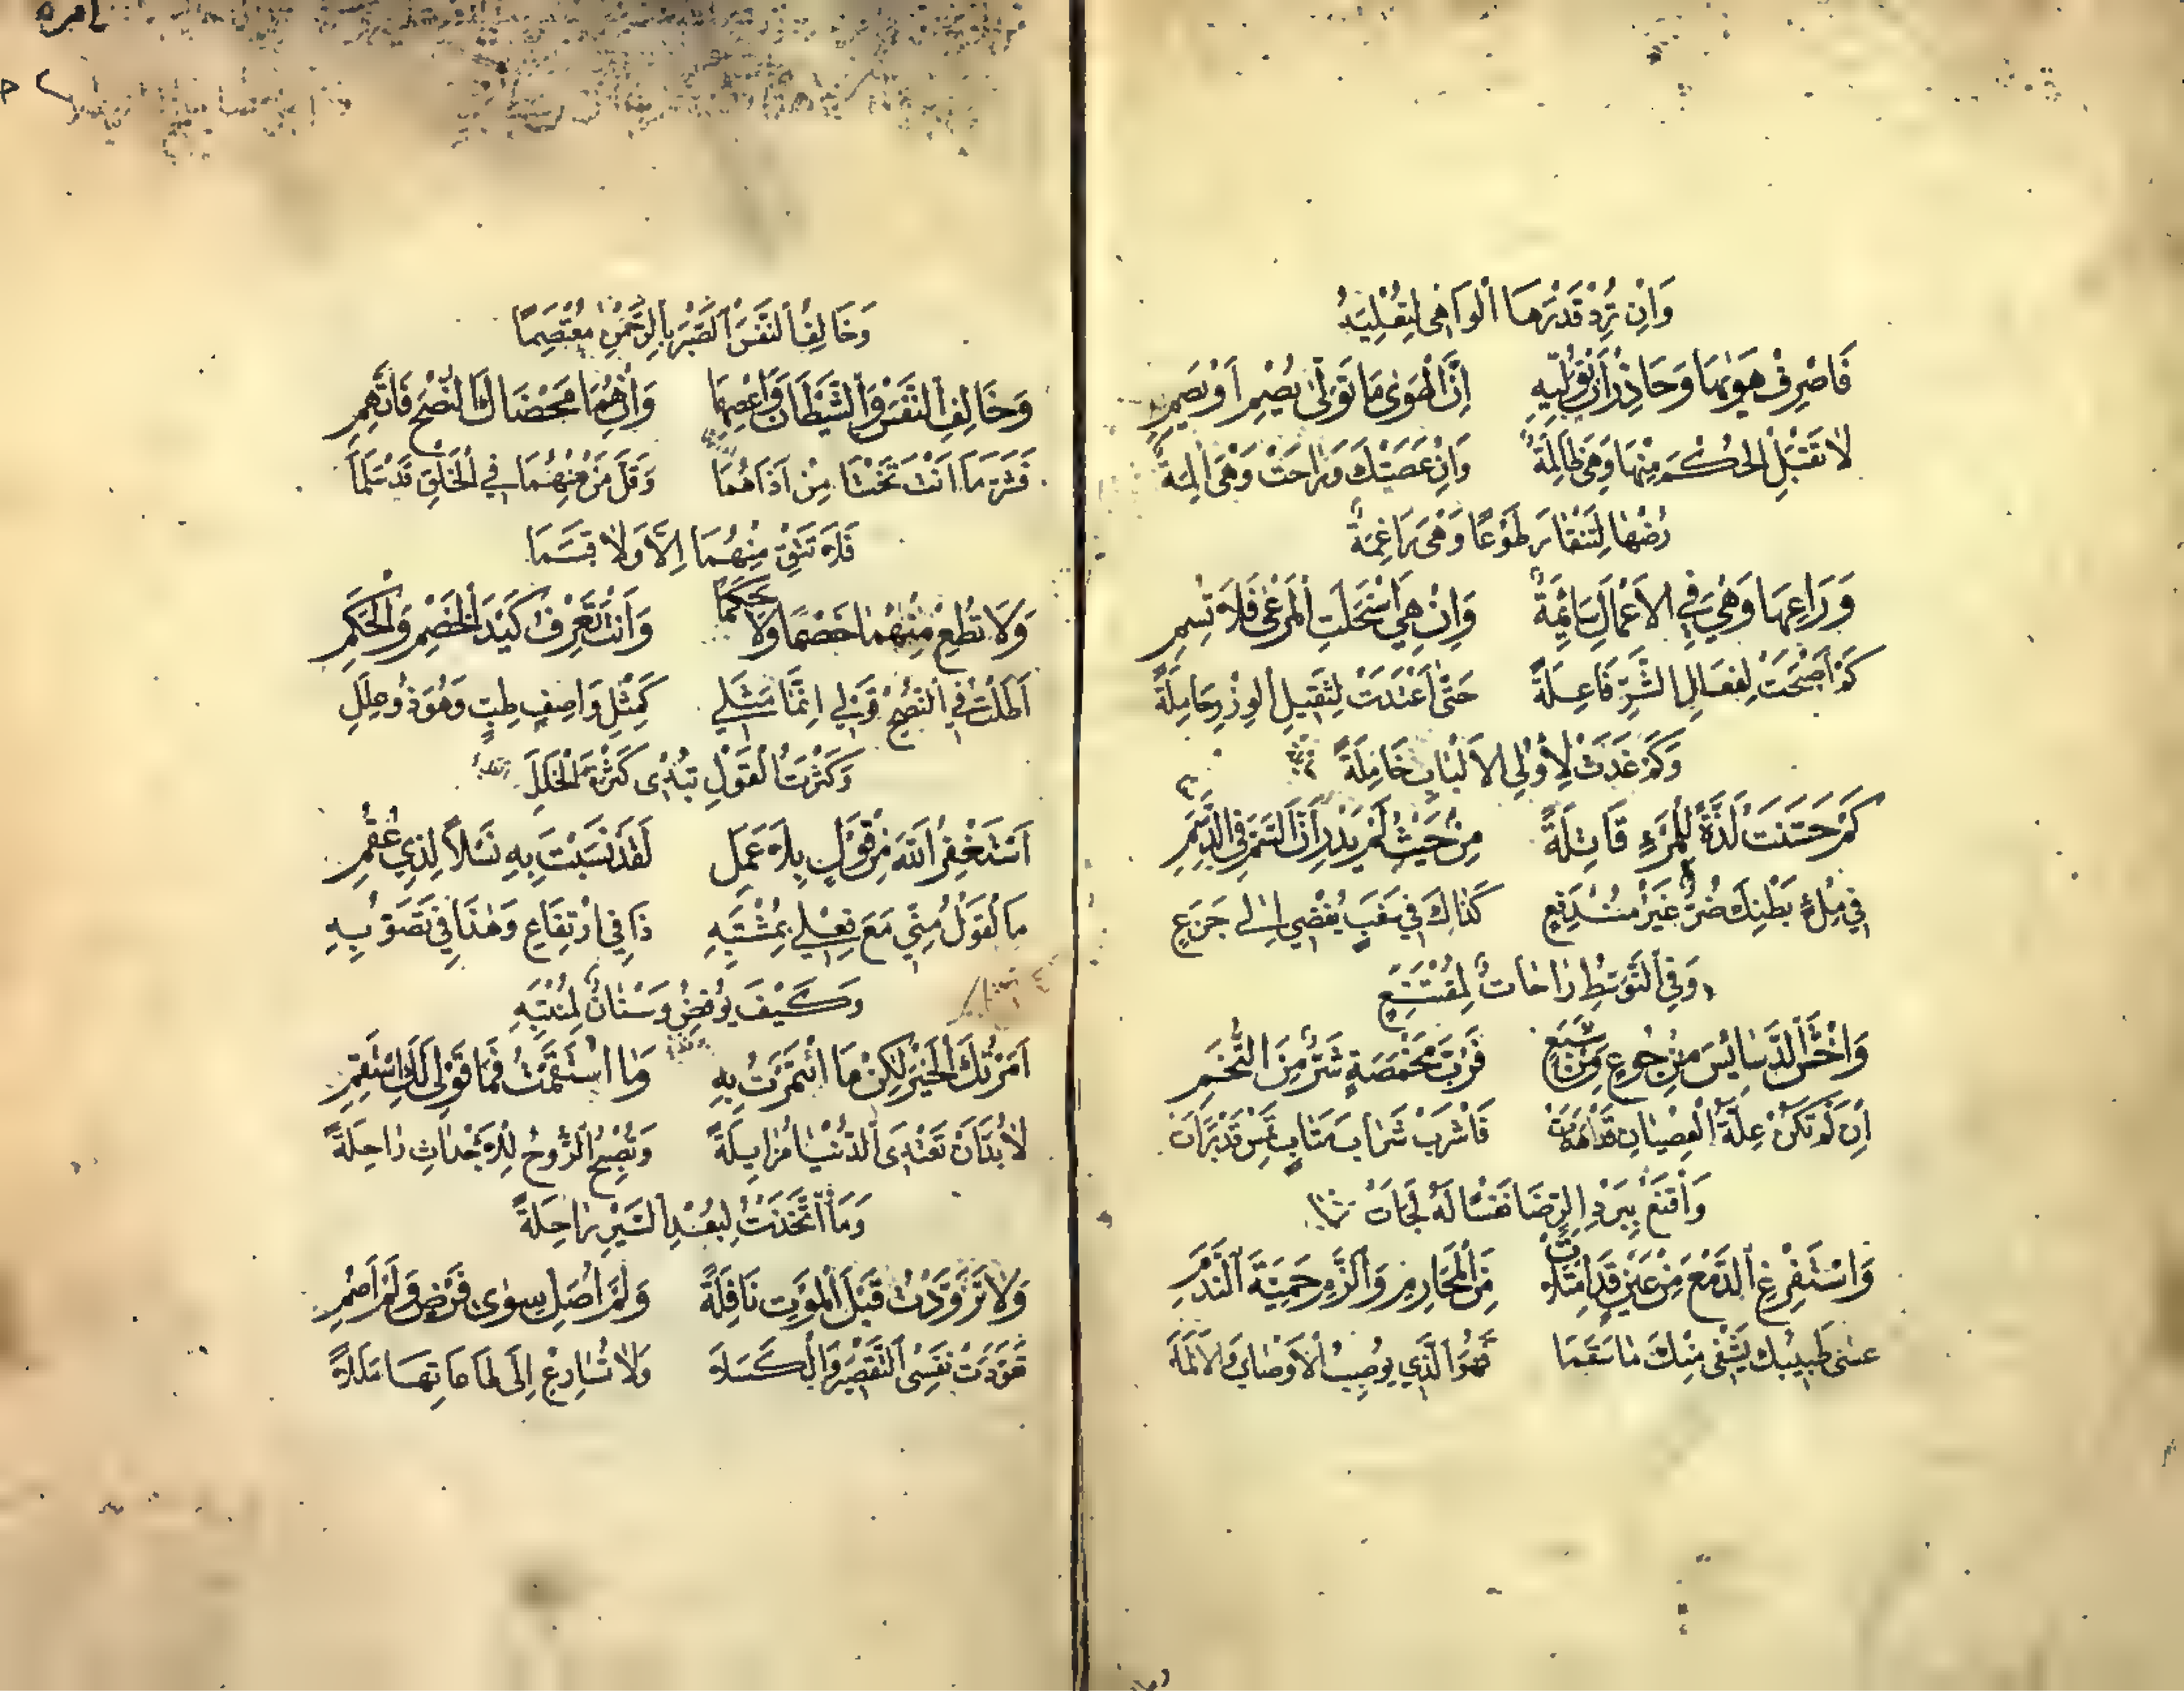 وَاِنْ تُرِدْ قَدْرَهَا الْوَاهِى لِتُعْلِيَهُ
فَاصْرِفْ هَوٰيهَا وَحَاذِرْ اَنْ تُوَلِّيَهِ اِنَّ الْهَوٰى مَا تَوَلّٰى يُصْمِ اَوْ يَصِمِ
لَا تَقْبَلِ الْحُكْمَ مِنْهَا وَهْىَ ظَالِمَةٌ وَاِنْ عَصَتْكَ وَرَاحَتْ وَهْىَ
رُضْهَا لِتَنْقَادَ طَوْعًا وَهْىَ رَاغِمَةٌ
وَرَاعِهَا وَهْىَ فِي الْاَعْمَالِ سَائِمَةٌ وَاِنْ هِيَ اسْتَحْلَتِ الْمَرْعٰى فَلَا تُسِمِ
كَمْ اَصْبَحَتْ لِفِعَالِ الشَّرِّ فَاعِلَةً حَتّٰى اغْتَدَتْ لِثَقِيلِ الْوِزْرِ حَامِلَةً
وَكَمْ غَدَتْ لِاُولِي الْاَلْبَابِ خَامِلَةً
كَمْ حَسَّنَتْ لَذَّةً لِلْمَرْءِ قَاتِلَةً مِنْ حَيْثُ لَمْ يَدْرِ اَنَّ السَّمَّ فِي الدَّسَمِ
فِي مِلْءِ بَطْنِكَ ضُرٌّ غَيْرُ مُنْدَفِعٍ كَذَاكَ فِي سَغَبٍ يُفْضِي اِلٰى جَزَعٍ
وَفِي التَّوَسُّطِ رَاحَاتٌ لِمُقْتَنِعٍ
وَاخْشَ الدَّسَايِسَ مِنْ جُوعٍ وَمِنْ شَبَعٍ فَرُبَّ مَخْمَصَةٍ شَرٌّ مِنَ التُّخَمِ
اِنْ لَمْ تَكُنْ عِلَّةُ الْعِصْيَانِ قَدْ فَاشْرَبْ شَرَابَ مَتَابٍ
وَاقْنَعْ بِبَرْدِ الرِّضَا نَفْسًا لَهُ لَجَاَتْ
وَاسْتَفْرِغِ الدَّمْعَ مِنْ عَيْنٍ قَدِ امْتَلَاَتْ مِنَ الْمَحَارِمِ وَالْزَمْ حِمْيَةَ النَّدَمِ
عَسٰى طَبِيبُكَ يَشْفِى مِنْكَ مَا سَقَمَا فَهْوَ الَّذِي يُوصِبُ الْاَوْصَابَ وَالْاَلَمَا
وَخَالِفِ النَّفْسَ بِالرَّحْمٰنِ مُعْتَصِمًا
وَخَالِفِ النَّفْسَ وَالشَّيْطَانَ وَاعْصِهِمَا وَاِنْ هُمَا مَحَضَاكَ النُّصْحَ فَاتَّهِمِ
فَثَمَّ مَا اَنْتَ تَخْشَا مِنْ اَذَاهُمَا وَقَلَّ مَنْ مِنْهُمَا فِي الْخَلْقِ قَدْ سَلِمَا
فَلَا تَثِقْ مِنْهُمَا اِلًّا وَلَا قَسَمَا
وَلَا تُطِعْ مِنْهُمَا خَصْمًا وَلَا حَكَمًا وَاَنْتَ تَعْرِفُ كَيْدَ الْخَصْمِ وَالْحَكَمِ
اَطَلْتُ فِي النُّصْحِ قَوْلِي اِنَّمَا مَثَلِي كَمِثْلِ وَاصِفِ طِبٍّ وَهْوَ ذُو عِلَلِ
وَكَثْرَةُ الْقَوْلِ تُبْدِى كَثْرَةَ الْخَلَلِ
اَسْتَغْفِرُ اللّٰهَ مِنْ قَوْلٍ بِلَا عَمَلٍ لَقَدْ نَسَبْتُ بِهِ نَسْلًا لِذِي عُقُمِ
مَا لْقَوْلُ مِنِّي مَعَ فِعْلِي بِمُشْتَبِهِ ذَا فِي ارْتِفَاعٍ وَهٰذَا فِي تَصَوُّبِهِ
وَكَيْفَ يُوقِظُ وَسْنَانٌ لِمُنْتَبِهِ
اَمَرْتُكَ الْخَيْرَ لٰكِنْ مَا ائْتَمَرْتُ بِهِ وَمَا اسْتَقَمْتُ فَمَا قَوْلِى لَكَ اسْتَقِمِ
لَا بُدَّ اَنْ تَغْتَدِى الدُّنْيَا مُزَايِلَةً وَتُصْبِحَ الرُّوحُ لِلْاَجْدَاثِ رَاحِلَةً
وَمَا اتَّخَذْتُ لِبُعْدِ السَّيْرِ رَاحِلَةً
وَلَا تَزَوَّدْتُ قَبْلَ الْمَوْتِ نَافِلَةً وَلَمْ اُصَلِّ سِوٰى فَرْضٍ وَلَمْ اَصُمِ
تَعَوَّدَتْ نَفْسِى التَّقْصِيرَ وَالْكَسَلَا وَلَا تُسَارِعْ اِلٰى طَاعَاتِهَا